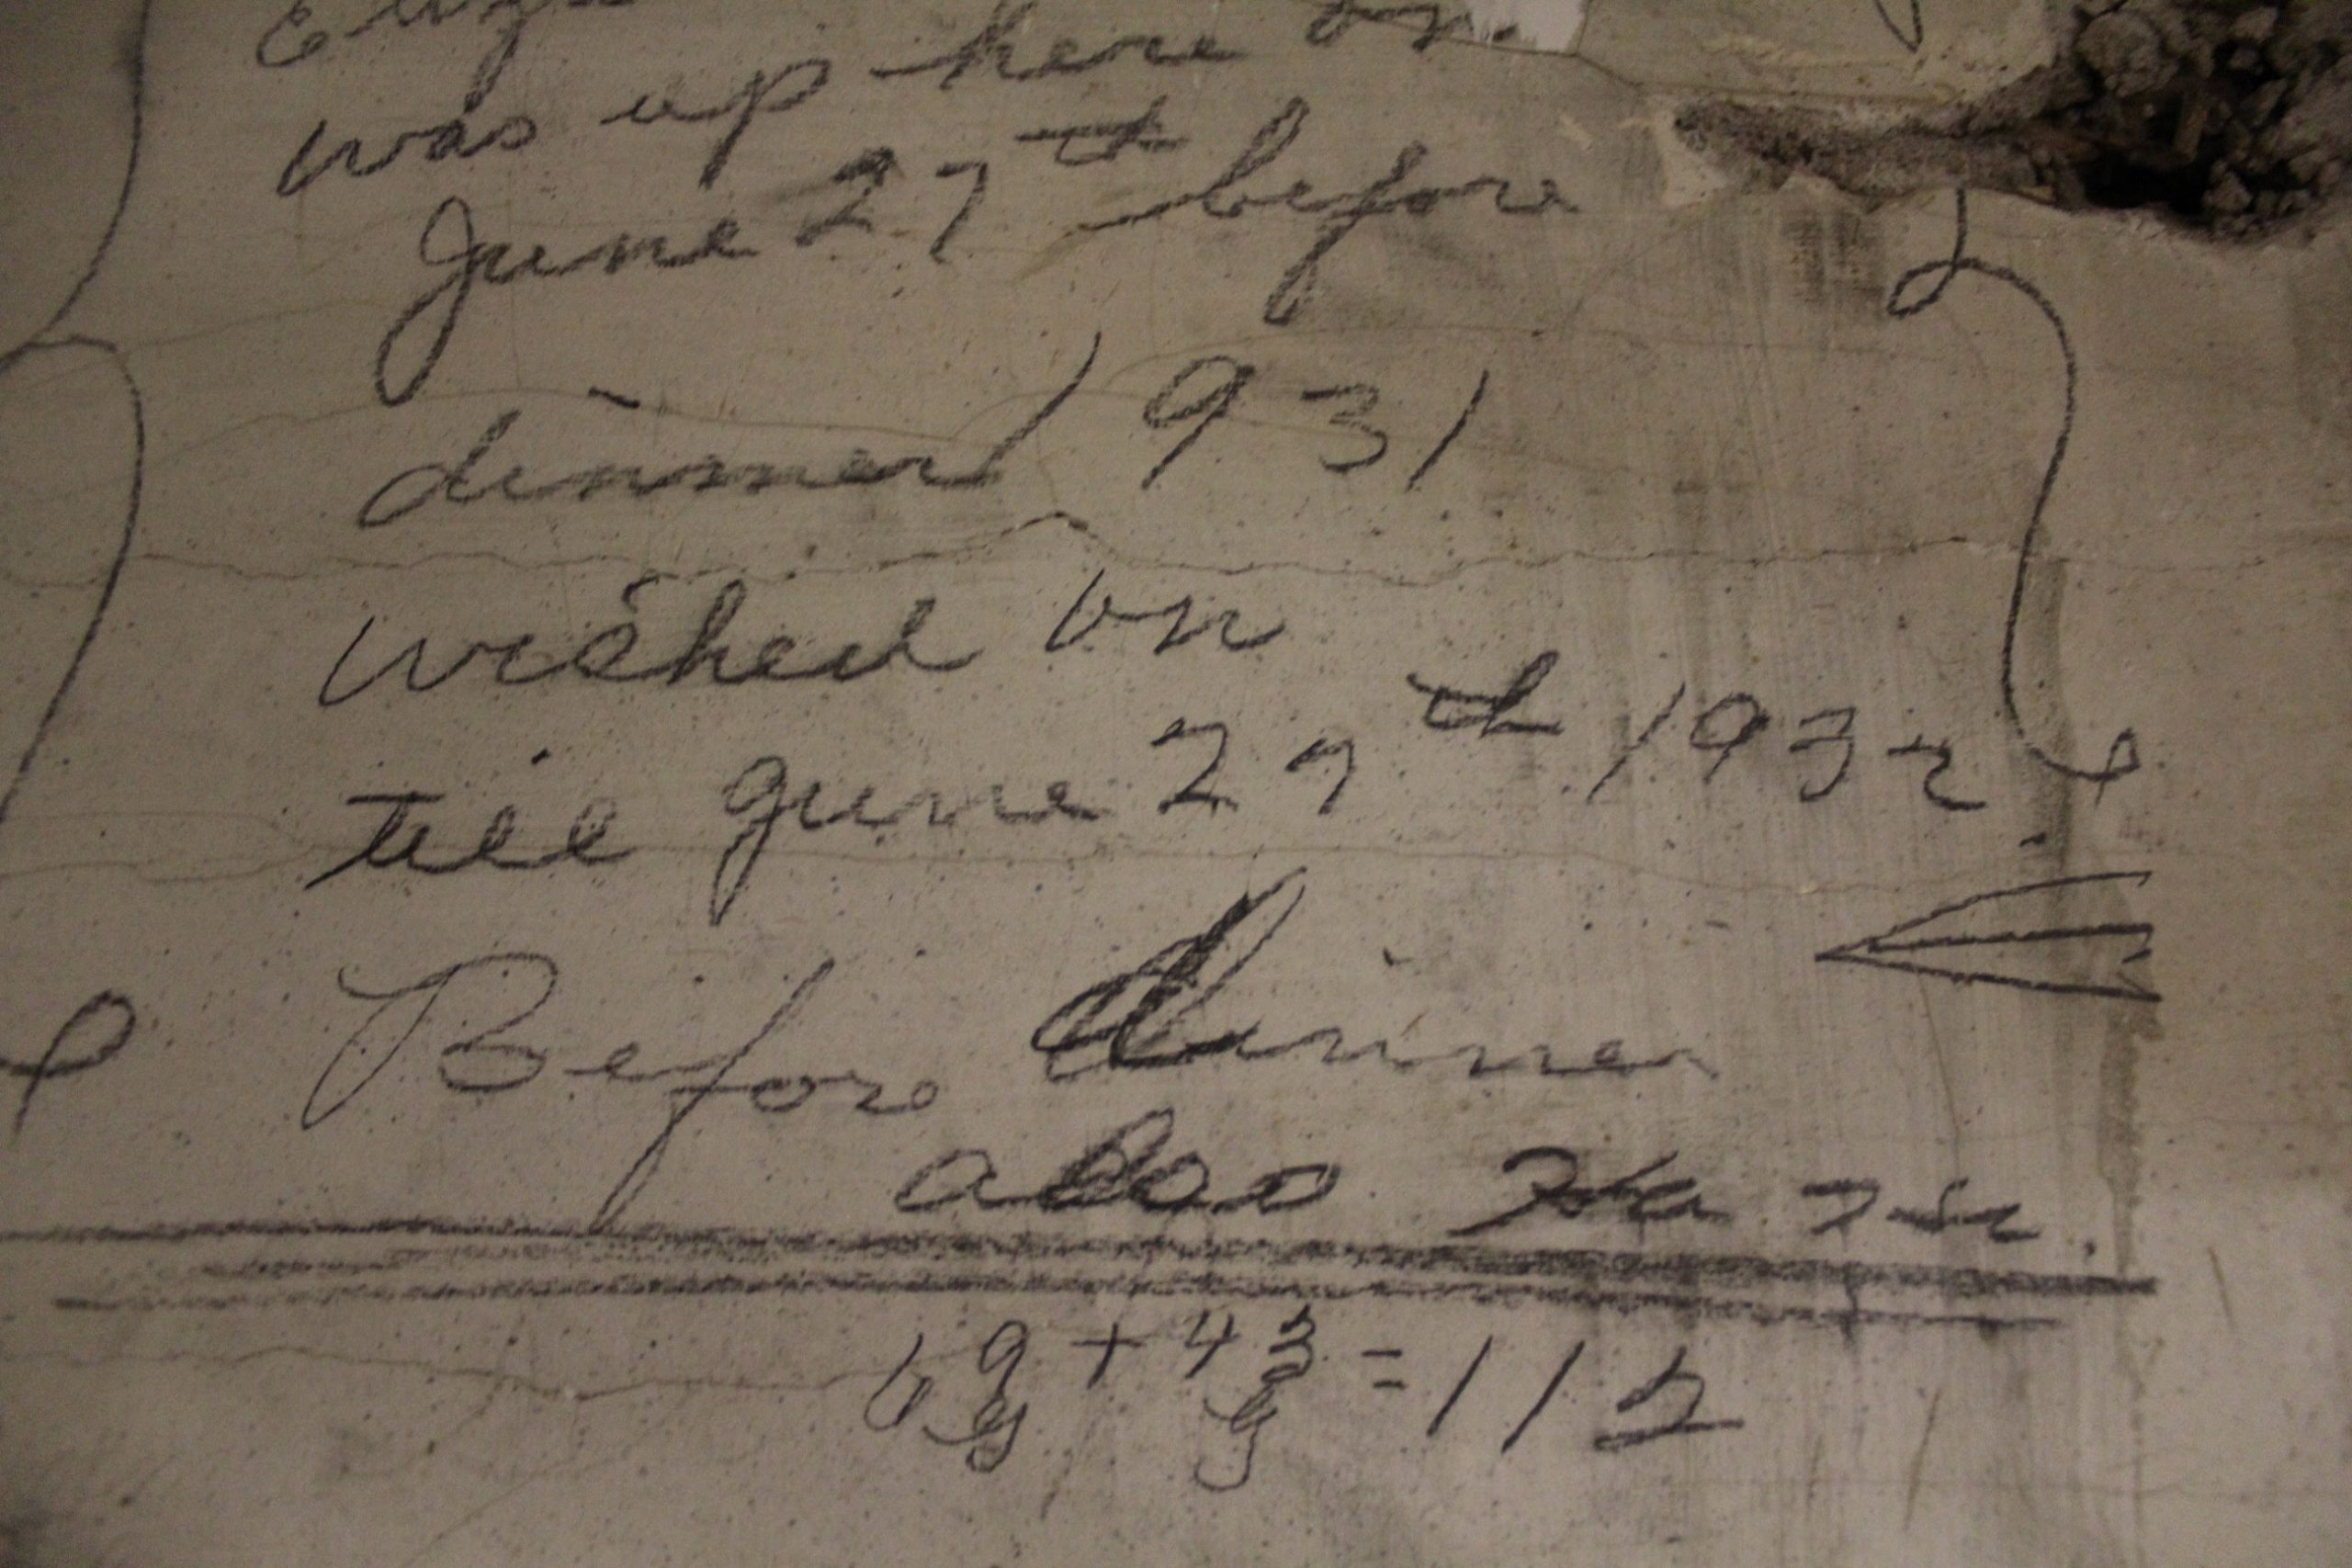 was up here on
June 27th before
dinner 1931
wished on
till june 27th 1932.
Before dinner
also
69 + 43 = 112